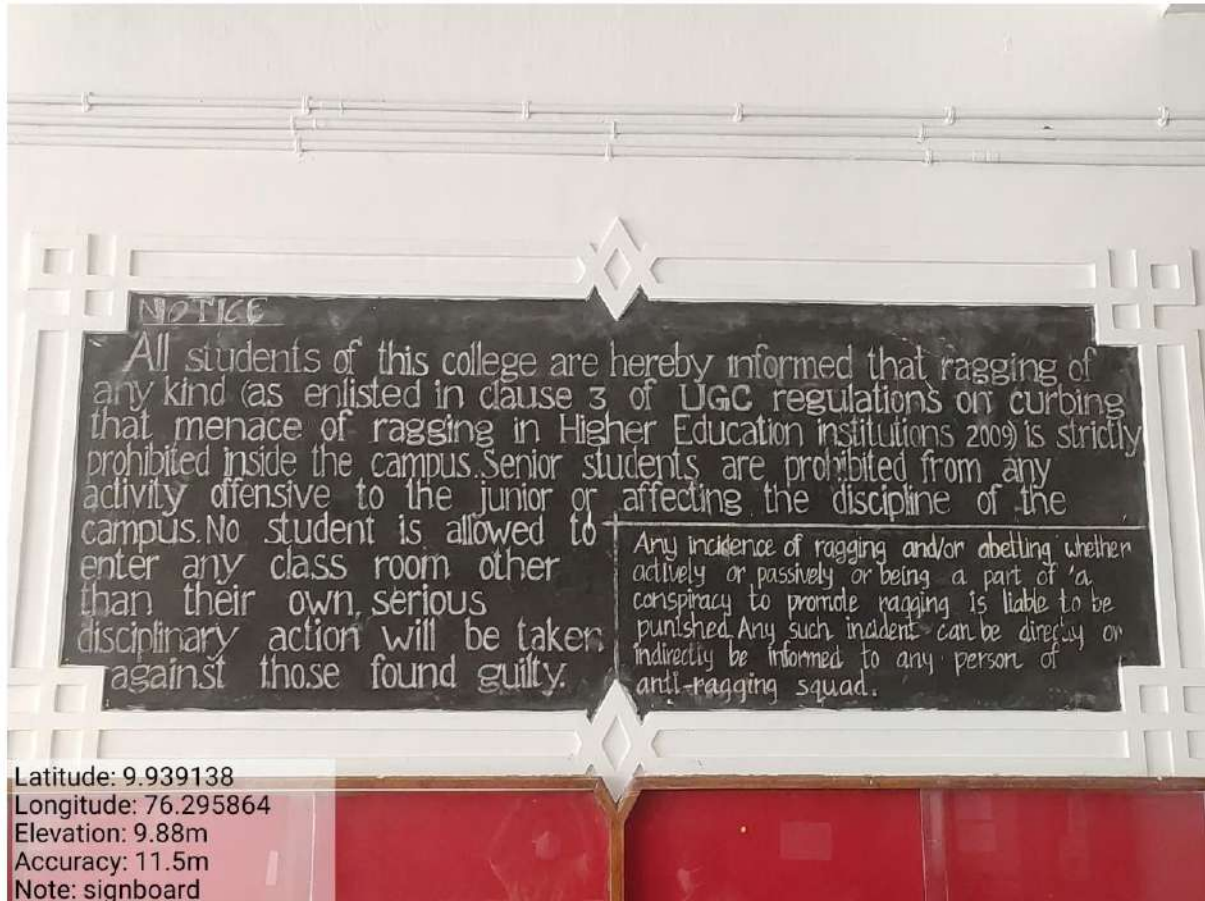 NOTICE
All students of this college are hereby informed that ragging of
any kind (as enlisted in clause 3 of UGC regulations on curbing
that menace of ragging in Higher Education institutions 2009) is strictly
prohibited inside the campus. Senior students are prohibited from any
activity offensive to the junior or affecting the discipline of the
campus. No student is allowed to
enter any class room other
than their own, serious
disciplinary action will be taken
against those found guilty.
Any incidence of ragging and/or abetting whether
actively or passively or being a part of a
conspiracy to promote ragging is liable to be
punished. Any such incident can be directly or
indirectly be informed to any person of
anti-ragging squad.
Latitude: 9.939138
Longitude: 76.295864
Elevation: 9.88m
Accuracy: 11.5m
Note: signboard